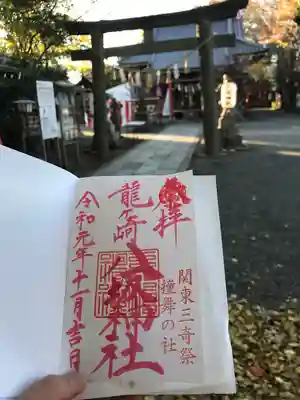 奉拝
関東三奇祭
撞舞の社
龍ケ崎
八坂神社
令和元年十一月吉日